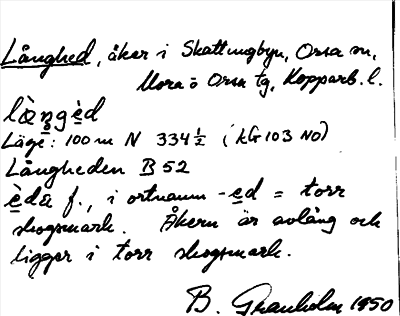 Långhed, åker i Skattungbyn, Orsa sn,
Mora o Orsa tg, Kopparb. l.
læ̀ngèd
Läge: 100 m N 334 ½ (kG 103 NO)
Långheden B 52
èda f., i ortnamn -ed = torr
skogsmark. Åkern är avlång och
ligger i torr skogsmark.
B. Granholm 1950